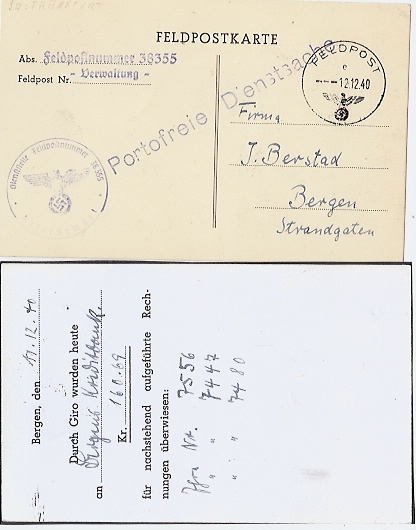 FELDPOSTKARTE
Abs. Feldpostnummer 38355
Feldpost Nr. - Verwaltung -
Portofreie Dienstsache
FELDPOST
c
- - - 12.12.40
Dienststelle Feldpostnummer 38355
Firma
J. Berstad
Bergen
Strandgaten
Bergen, den 11.12.40
Durch Giro wurden heute
an Bergens Kreditbank
Kr. 160.69
für nachstehend aufgeführte Rech-
nungen überwiesen:
Ihre Nr. 7556
" " 7447
" " 7480